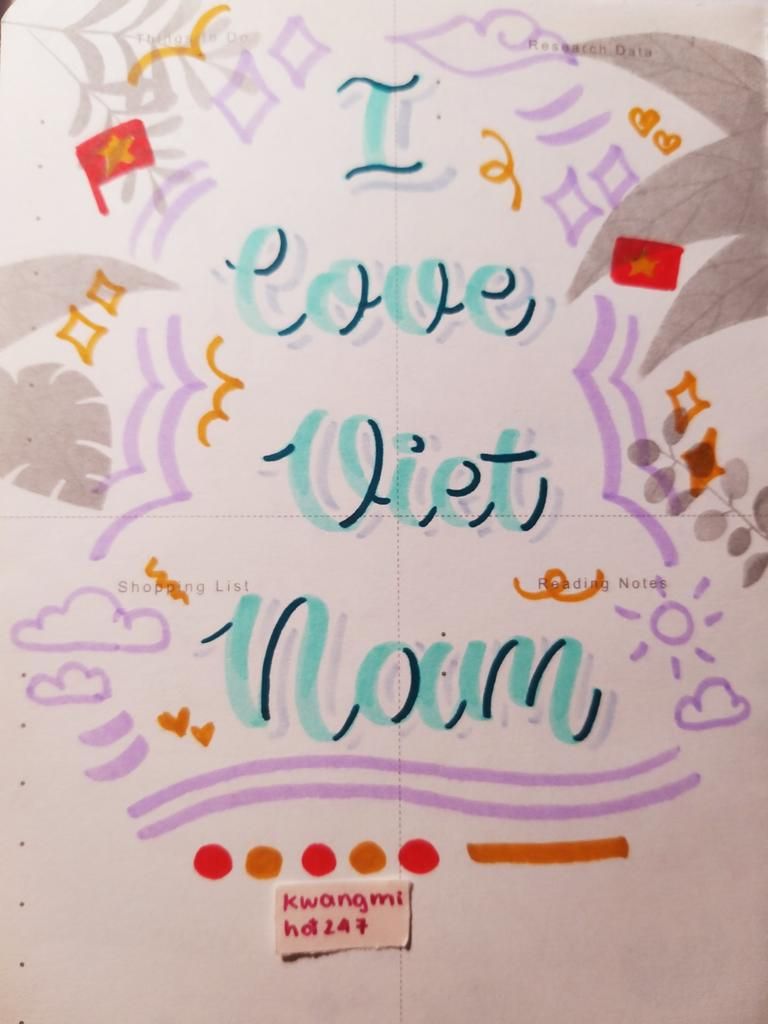 Things to Do
Research Data
I
love
Viet
Nam
Shopping List
Reading Notes
kwangmi
hot247